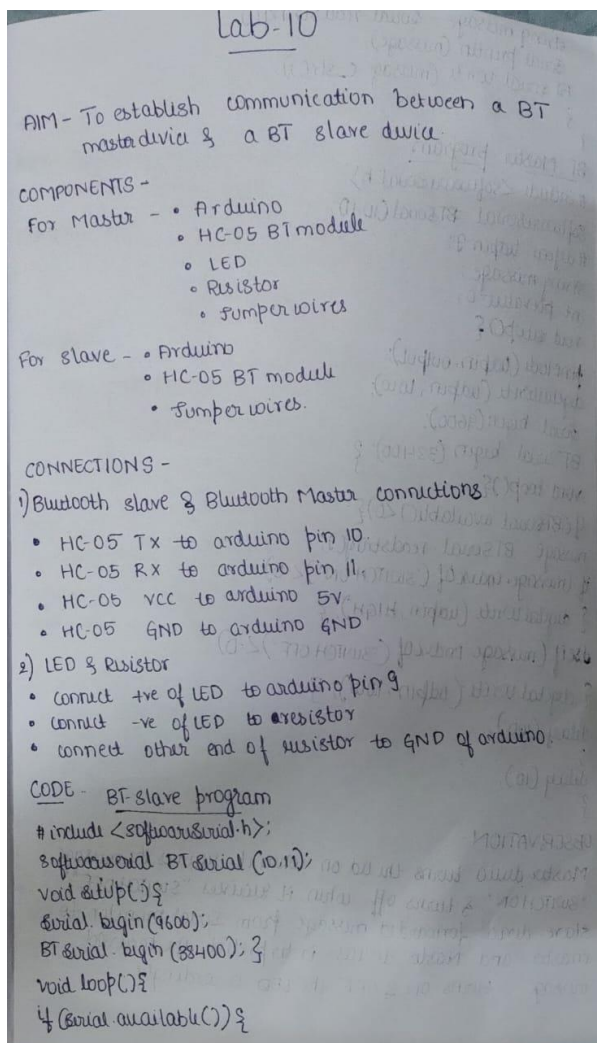 Lab-10
AIM - To establish communication between a BT
master device & a BT slave device.
COMPONENTS -
For Master - • Arduino
• HC-05 BT module
• LED
• Resistor
• Jumper wires
For slave - • Arduino
• HC-05 BT module
• Jumper wires.
CONNECTIONS -
1) Bluetooth slave & Bluetooth Master connections
• HC-05 TX to arduino pin 10
• HC-05 RX to arduino pin 11
• HC-05 VCC to arduino 5V
• HC-05 GND to arduino GND
2) LED & Resistor
• connect +ve of LED to arduino pin 9
• connect -ve of LED to a resistor
• connect other end of resistor to GND of arduino
CODE - BT-slave program
#include <softwareserial.h>;
softwareserial BTserial (10,11);
void setup(){
serial.begin(9600);
BTserial.begin(38400); }
void loop(){
if (serial.available()){